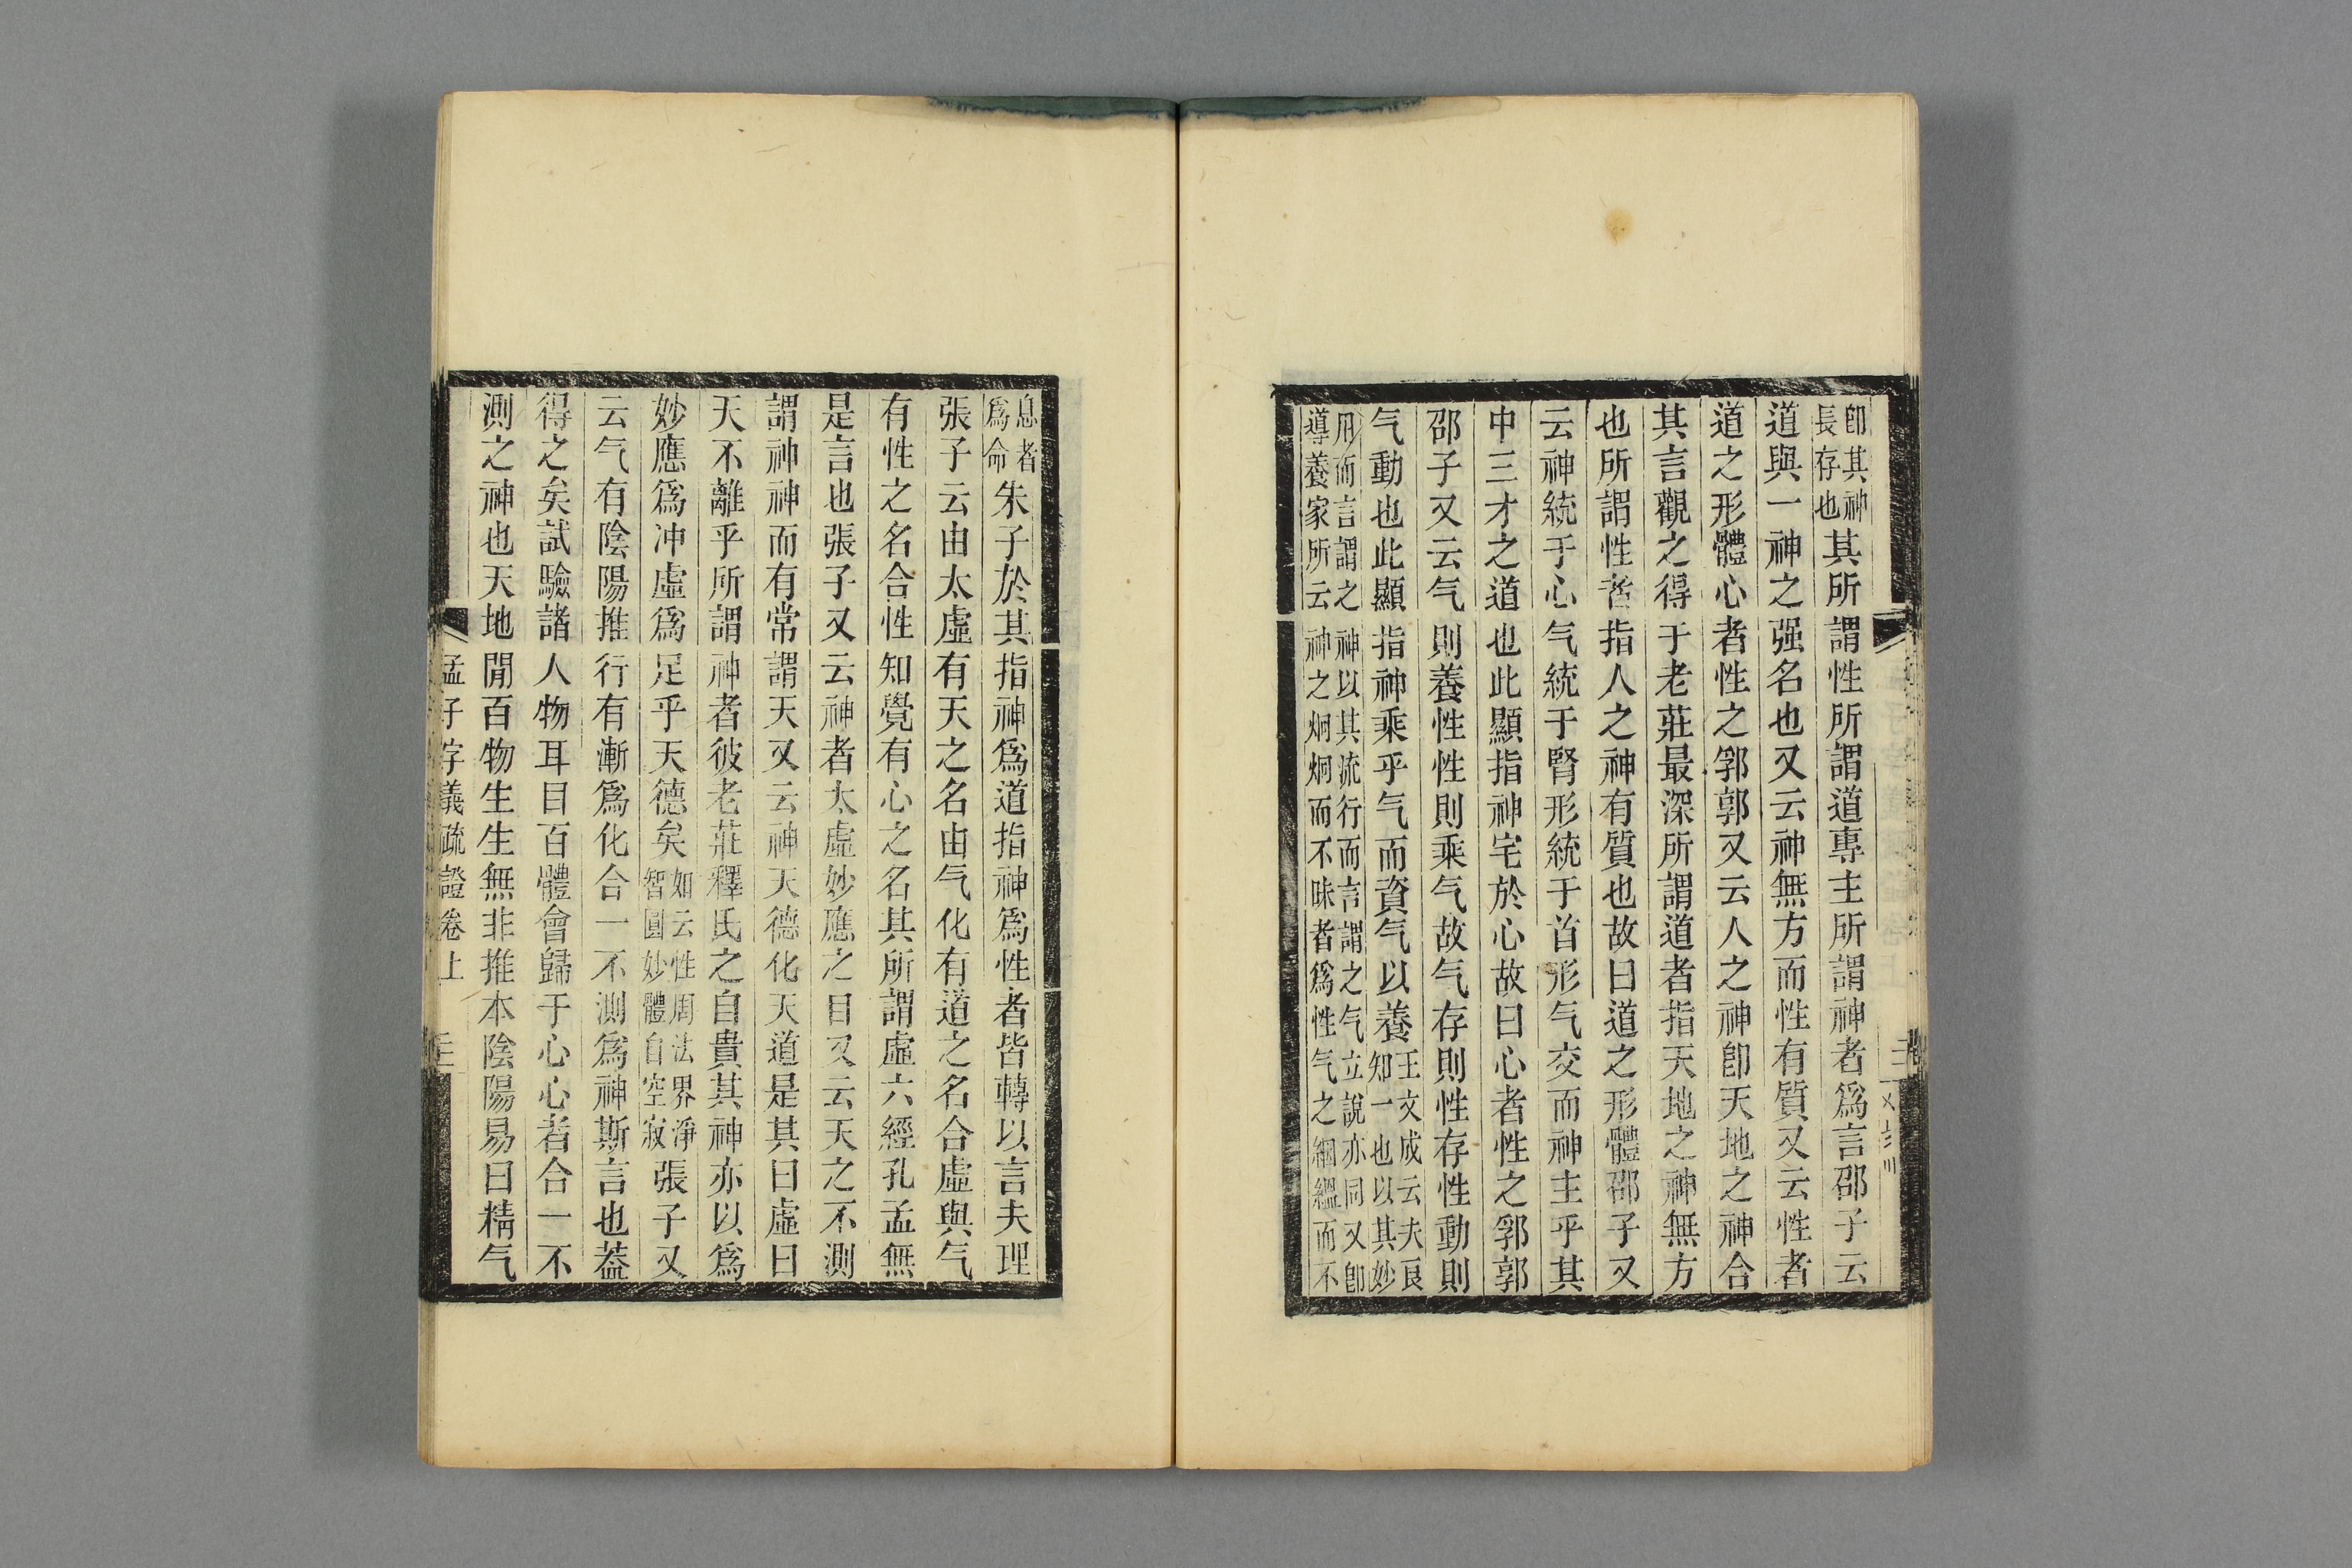 即其神長存也其所謂性所謂道專主所謂神者爲言邵子云
道與一神之强名也又云神無方而性有質又云性者
道之形體心者性之郛郭又云人之神卽天地之神合
其言觀之得于老莊最深所謂道者指天地之神無方
也所謂性者指人之神有質也故曰道之形體邵子又
云神統于心气統于腎形統于首形气交而神主乎其
中三才之道也此顯指神宅於心故曰心者性之郛郭
邵子又云气則養性性則乘气故气存則性存性動則
气動也此顯指神乘乎气而資气以養王文成云夫良知一也以其妙
用而言謂之神以其流行而言謂之气立說亦同又卽
導養家所云神之炯炯而不昧者爲性气之絪縕而不
息者爲命朱子於其指神爲道指神爲性者皆轉以言夫理
張子云由太虛有天之名由气化有道之名合虛與气
有性之名合性知覺有心之名其所謂虛六經孔孟無
是言也張子又云神者太虛妙應之目又云天之不測
謂神神而有常謂天又云神天德化天道是其曰虛曰
天不離乎所謂神者彼老莊釋氏之自貴其神亦以爲
妙應爲冲虛爲足乎天德矣如云性周法界淨智圓妙體自空寂張子又
云气有陰陽推行有漸爲化合一不測爲神斯言也蓋
得之矣試驗諸人物耳目百體會歸于心心者合一不
測之神也天地閒百物生生無非推本陰陽易曰精气
孟子字義疏證卷上